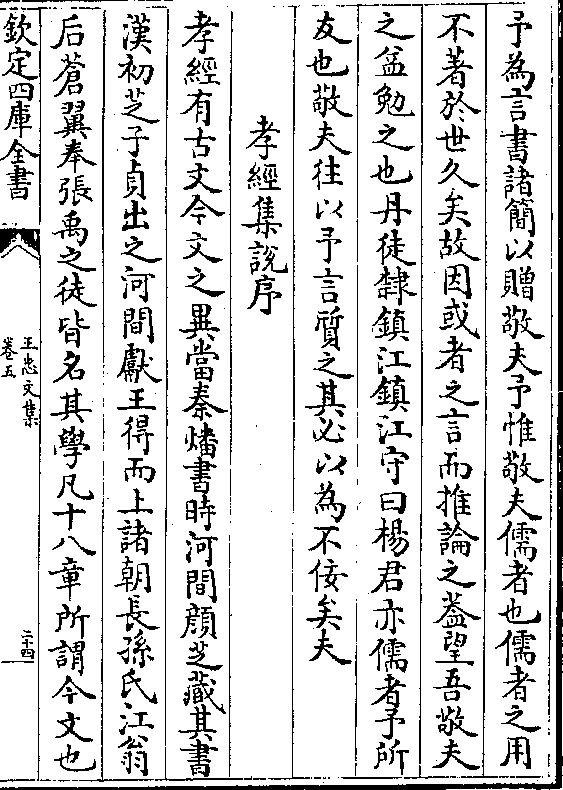 予為言書諸簡以贈敬夫予惟敬夫儒者也儒者之用
不著於世久矣故因或者之言而推論之葢望吾敬夫
之益勉之也丹徒隸鎮江鎮江守曰楊君亦儒者予所
友也敬夫往以予言質之其必以為不佞矣夫
孝經集說序
孝經有古文今文之異當秦燔書時河間顔芝藏其書
漢初芝子貞出之河間獻王得而上諸朝長孫氏江翁
后蒼翼奉張禹之徒皆名其學凡十八章所謂今文也
欽定四庫全書
王忠文集
卷五
二十四